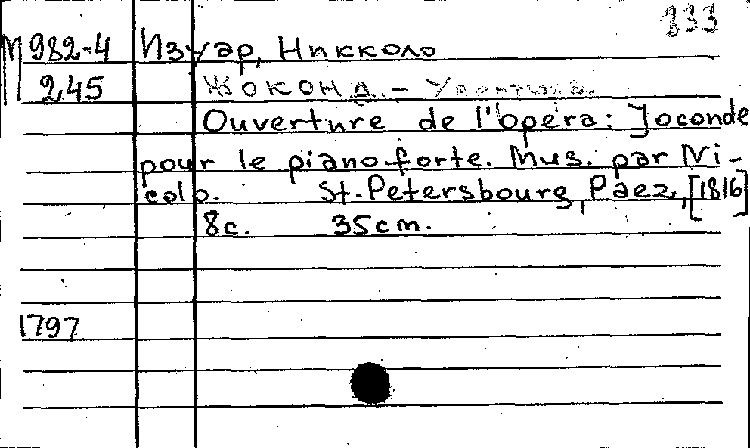 333
М 982-4 Изуар, Никколо
245 Жоконд. -
Ouverture de l'opera: Joconde
pour le piano forte. Mus. par Ni-
colo. St.-Petersbourg, Paez, [1816]
8с. 35cm.
1797